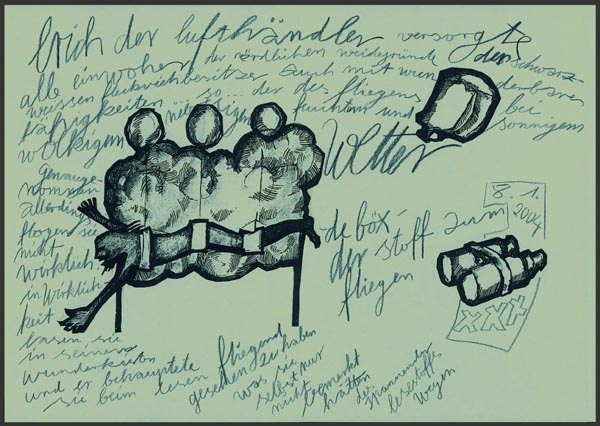 Erich der lufthändler versorgte
alle einwohner der nördlichen weidegründe der schwarz-
weissen fleckviehbesitzer auch mit wunderbaren
fähigkeiten so... der des fliegens bei
nebligem feuchtem und sonnigem
wolkigem Wetter
Genauge-
nommen
allerdings
flogen sie
nicht
wirklich.
in Wirklich-
keit
lasen sie
in seinem
wunderkasten
und er behauptete
sie beim lesen fliegend
gesehen zu haben
was sie
selbst nur
nicht
bemerkt
hatten
der
spannenden
lesestoffes
wegen
de böx-
der stoff zum
fliegen
8.1.
2004
XXX